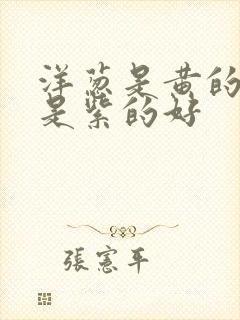 洋葱是黄的
是紫的好
張憲平